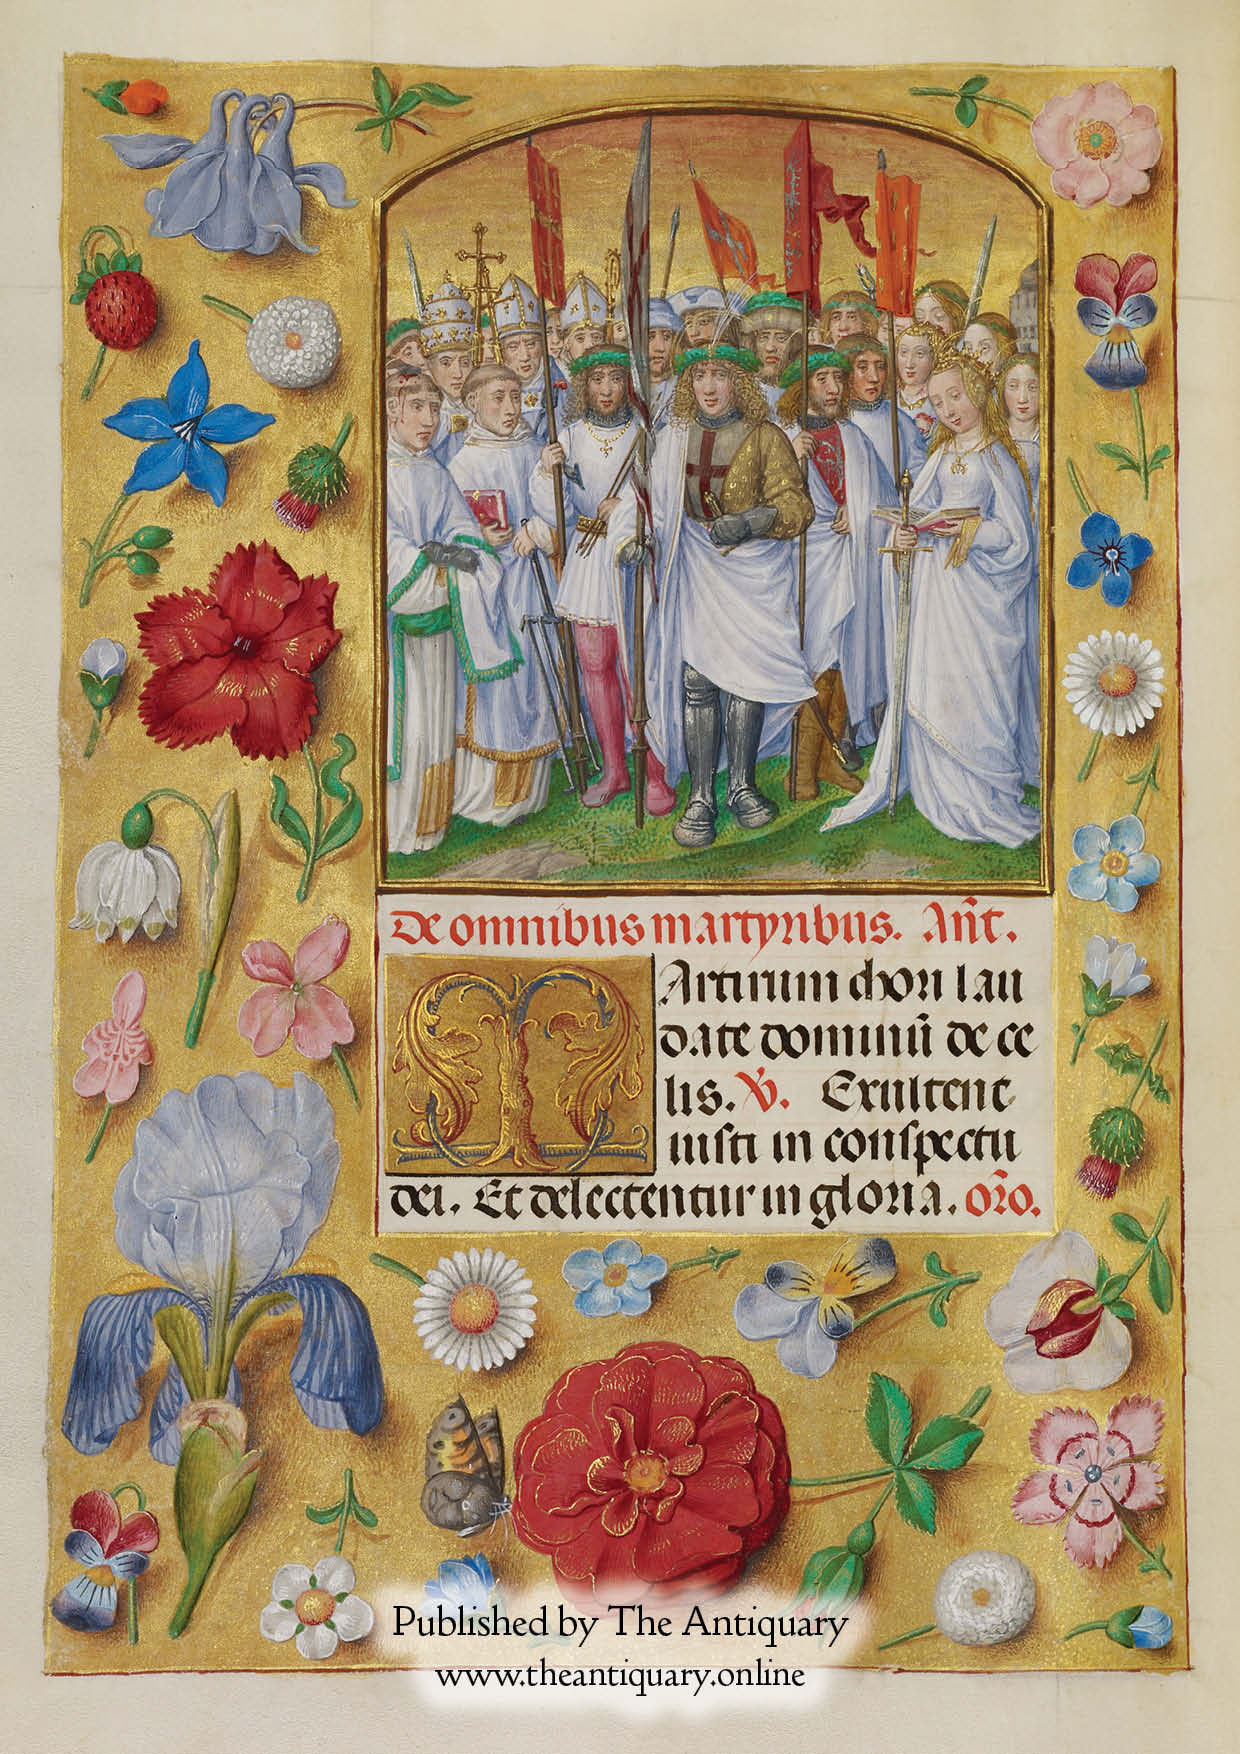 De omnibus martyribus. Añt.
Martirum chori lau
date dominū de ce
lis. V̄. Exultent
iusti in conspectu
dei. Et delectentur in gloria. or̄o.
Published by The Antiquary
www.theantiquary.online